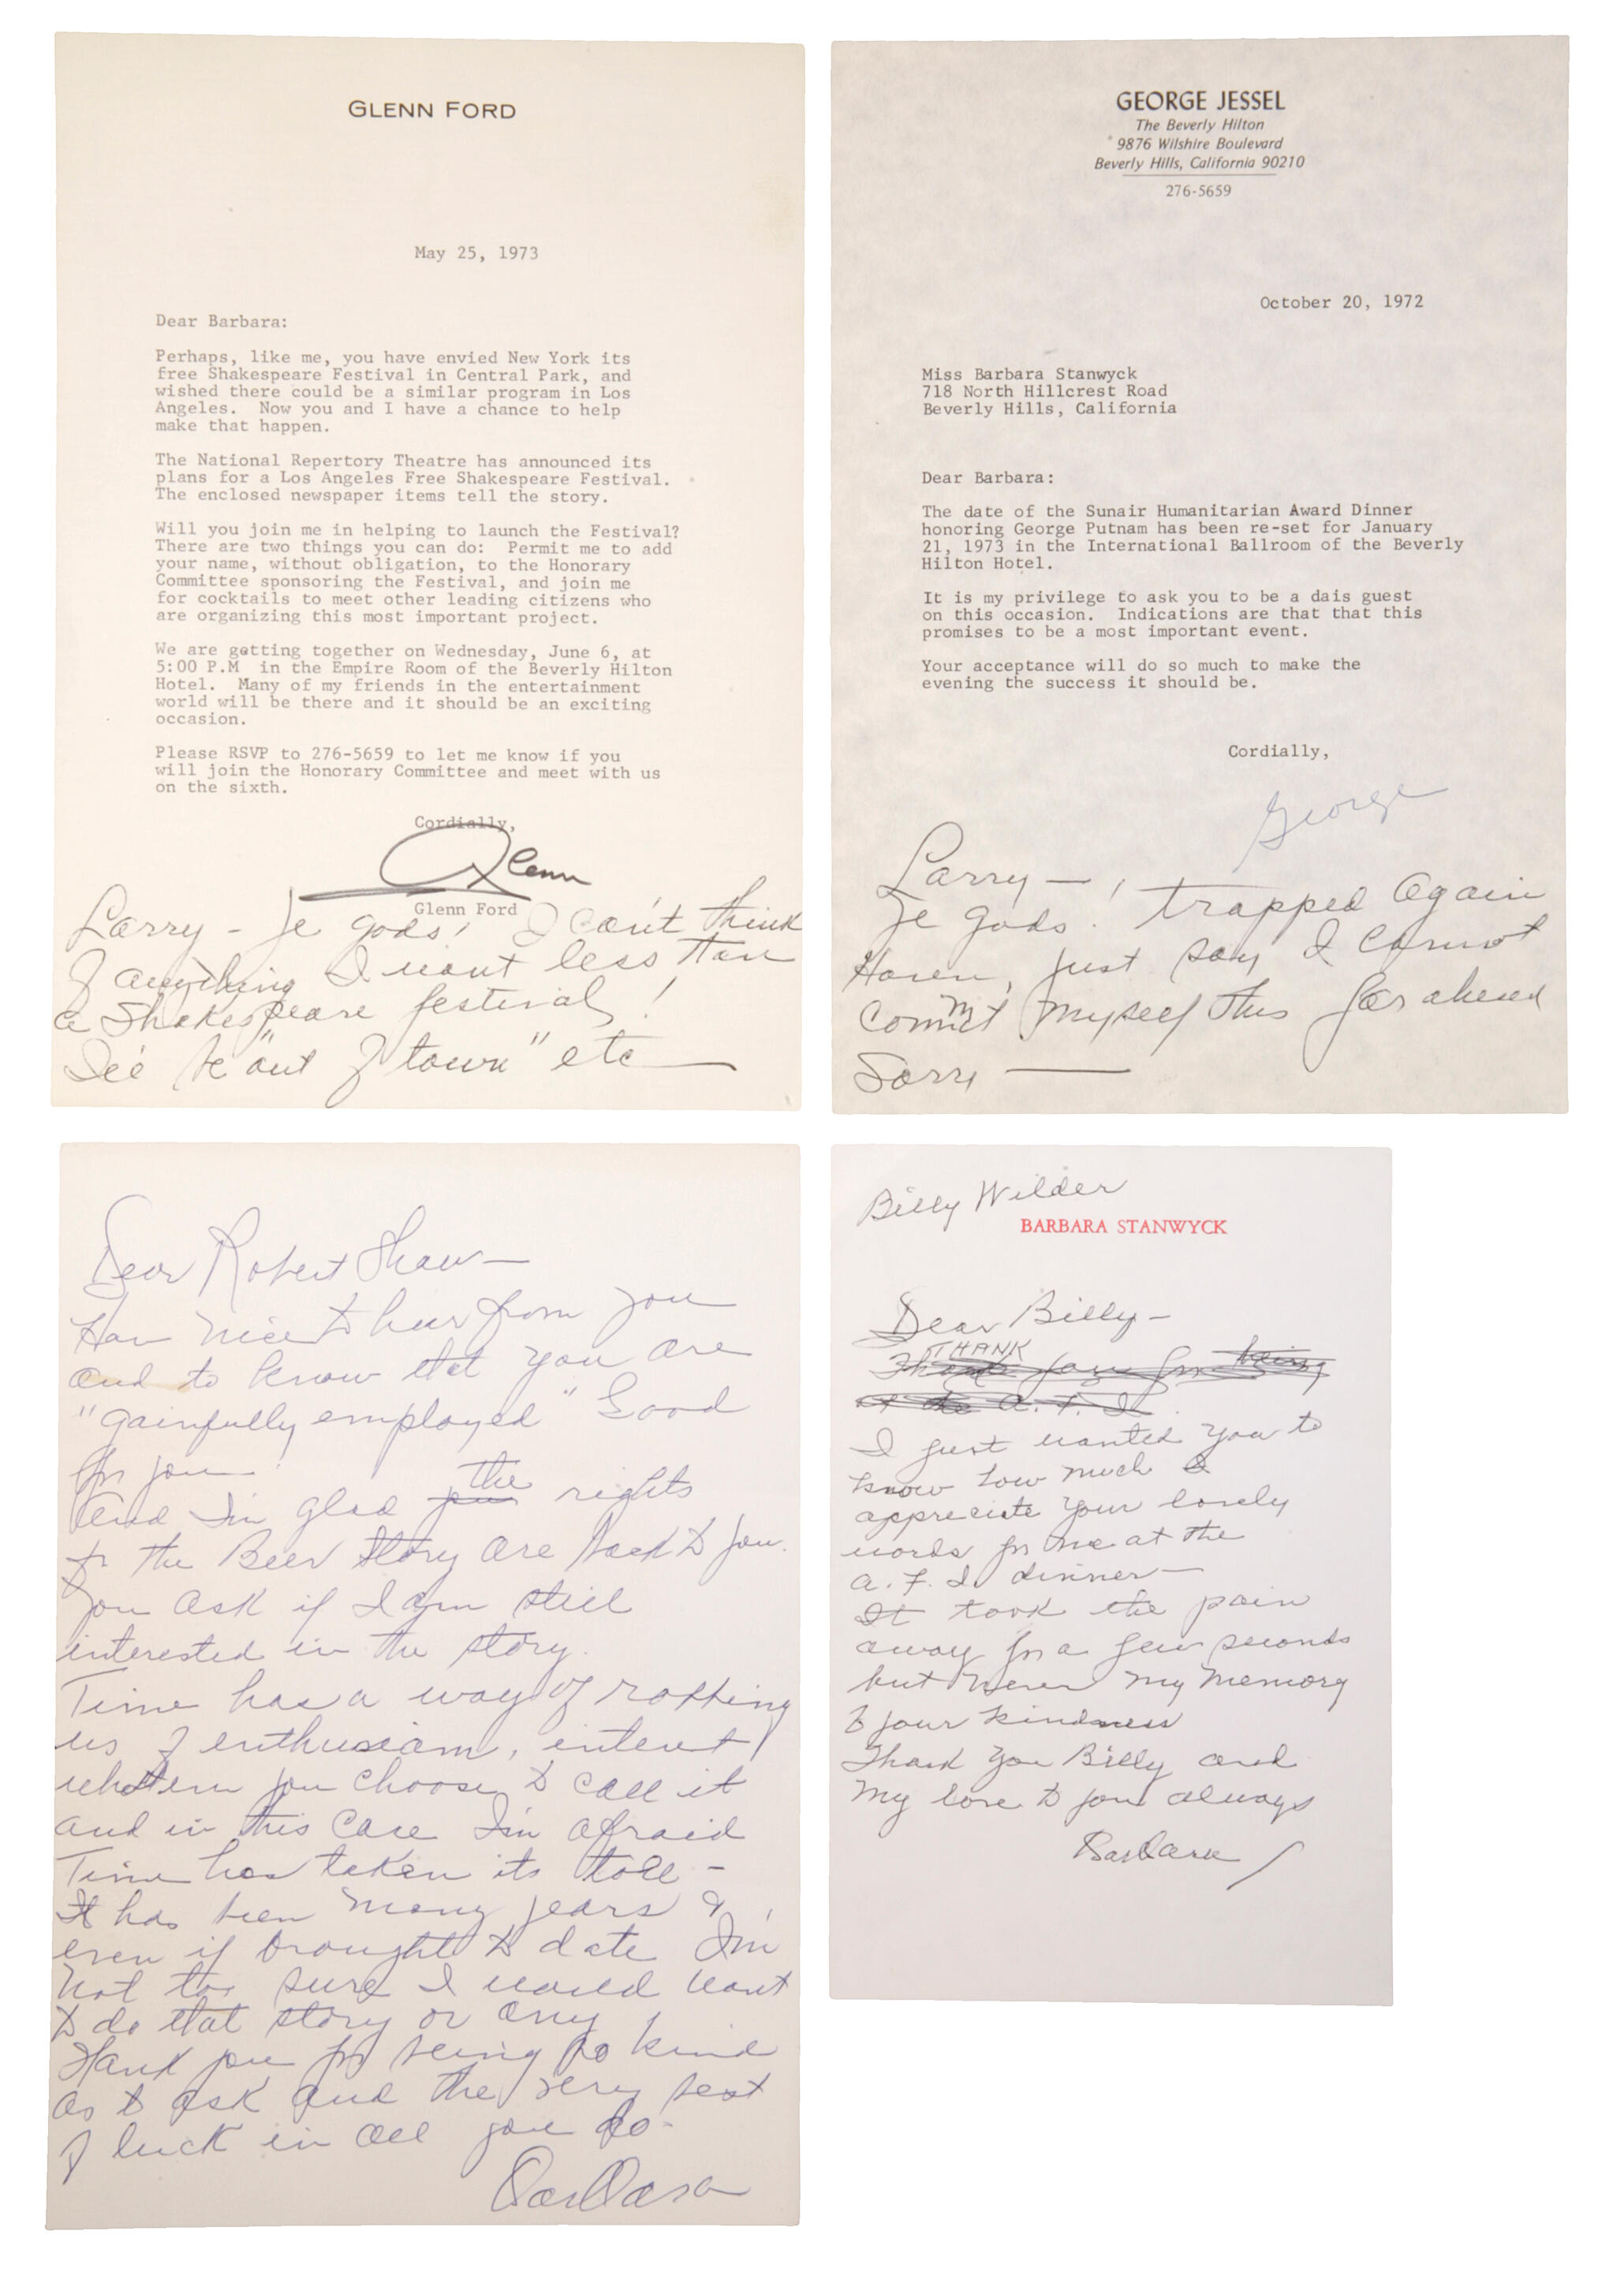 GLENN FORD
May 25, 1973
Dear Barbara:
Perhaps, like me, you have envied New York its
free Shakespeare Festival in Central Park, and
wished there could be a similar program in Los
Angeles. Now you and I have a chance to help
make that happen.
The National Repertory Theatre has announced its
plans for a Los Angeles Free Shakespeare Festival.
The enclosed newspaper items tell the story.
Will you join me in helping to launch the Festival?
There are two things you can do: Permit me to add
your name, without obligation, to the Honorary
Committee sponsoring the Festival, and join me
for cocktails to meet other leading citizens who
are organizing this most important project.
We are getting together on Wednesday, June 6, at
5:00 P.M in the Empire Room of the Beverly Hilton
Hotel. Many of my friends in the entertainment
world will be there and it should be an exciting
occasion.
Please RSVP to 276-5659 to let me know if you
will join the Honorary Committee and meet with us
on the sixth.
Cordially,
Glenn
Glenn Ford
Larry - Ye gods! I can't think
of anything I want less than
a Shakespeare festival!
I'll be "out of town" etc —
GEORGE JESSEL
The Beverly Hilton
9876 Wilshire Boulevard
Beverly Hills, California 90210
276-5659
October 20, 1972
Miss Barbara Stanwyck
718 North Hillcrest Road
Beverly Hills, California
Dear Barbara:
The date of the Sunair Humanitarian Award Dinner
honoring George Putnam has been re-set for January
21, 1973 in the International Ballroom of the Beverly
Hilton Hotel.
It is my privilege to ask you to be a dais guest
on this occasion. Indications are that that this
promises to be a most important event.
Your acceptance will do so much to make the
evening the success it should be.
Cordially,
George
Larry —
Ye gods! trapped again
just say I cannot
commit myself this far ahead
Sorry —
Dear Robert Shaw —
How nice to hear from you
and to know that you are
"gainfully employed" Good
for you!
And I'm glad the rights
to the Beer Story are back to you.
You ask if I am still
interested in the story.
Time has a way of robbing
us of enthusiasm, interest
whatever you choose to call it
and in this case I'm afraid
Time has taken its toll -
It has been many years &
even if brought to date I'm
not too sure I would want
to do that story or any
Thank you for being so kind
as to ask and the very best
of luck in all you do -
Barbara
Billy Wilder
BARBARA STANWYCK
Dear Billy -
THANK
Thank you for being
at the A.F.I.
I just wanted you to
know how much I
appreciate your lovely
words for me at the
A.F.I. dinner —
It took the pain
away for a few seconds
but never my memory
of your kindness
Thank you Billy and
my love to you always
Barbara